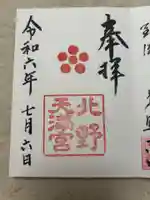 奉拝
北野
天満宮
令和六年
七月六日